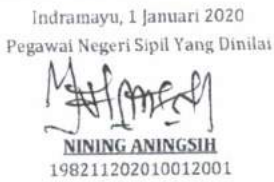 Indramayu, 1 Januari 2020
Pegawai Negeri Sipil Yang Dinilai
NINING ANINGSIH
198211202010012001